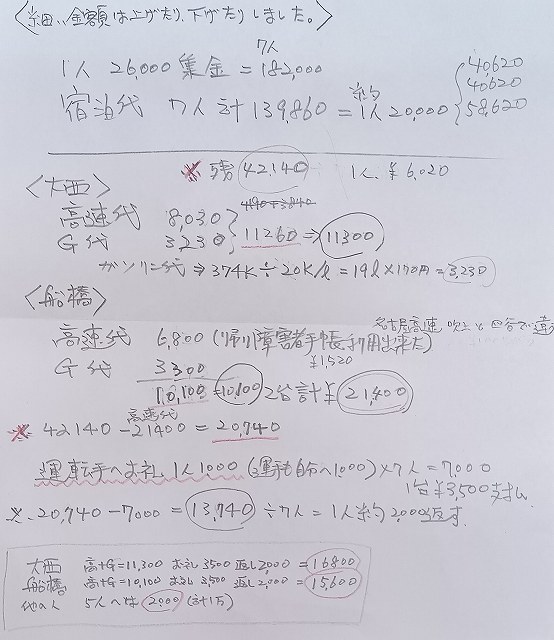 〈細い金額は上げたり、下げたりしました。〉
7人
1人 26,000 集金 = 182,000
宿泊代 7人計 139,860 = 約1人 20,000
40620
40620
58,620
※ 残 42,140 1人 ¥6,020
〈大西〉
高速代 8,030
G代 3230
11260 ⇒ 11300
ガソリン代 ⇒ 374K÷20K/ℓ = 19ℓ×170円 = 3,230
〈船橋〉
名古屋高速 吹上と四谷で違
高速代 6,800 (帰り障害者手帳利用出来た)
¥1,520
G代 3300
10,100 = 10,100 2台計¥21,400
高速代
※ 42140 - 21400 = 20,740
運転手へお礼 1人1,000 (運転自分へ1000)×7人 = 7,000
1台¥3,500支払
※. 20,740 - 7000 = 13,740 ÷7人 = 1人約2,000返す.
大西 高+G=11,300 お礼3500 返し2,000 = 16800
船橋 高+G=10,100 お礼3,500 返し2,000 = 15,600
他の人 5人へは 2000 (計1万)